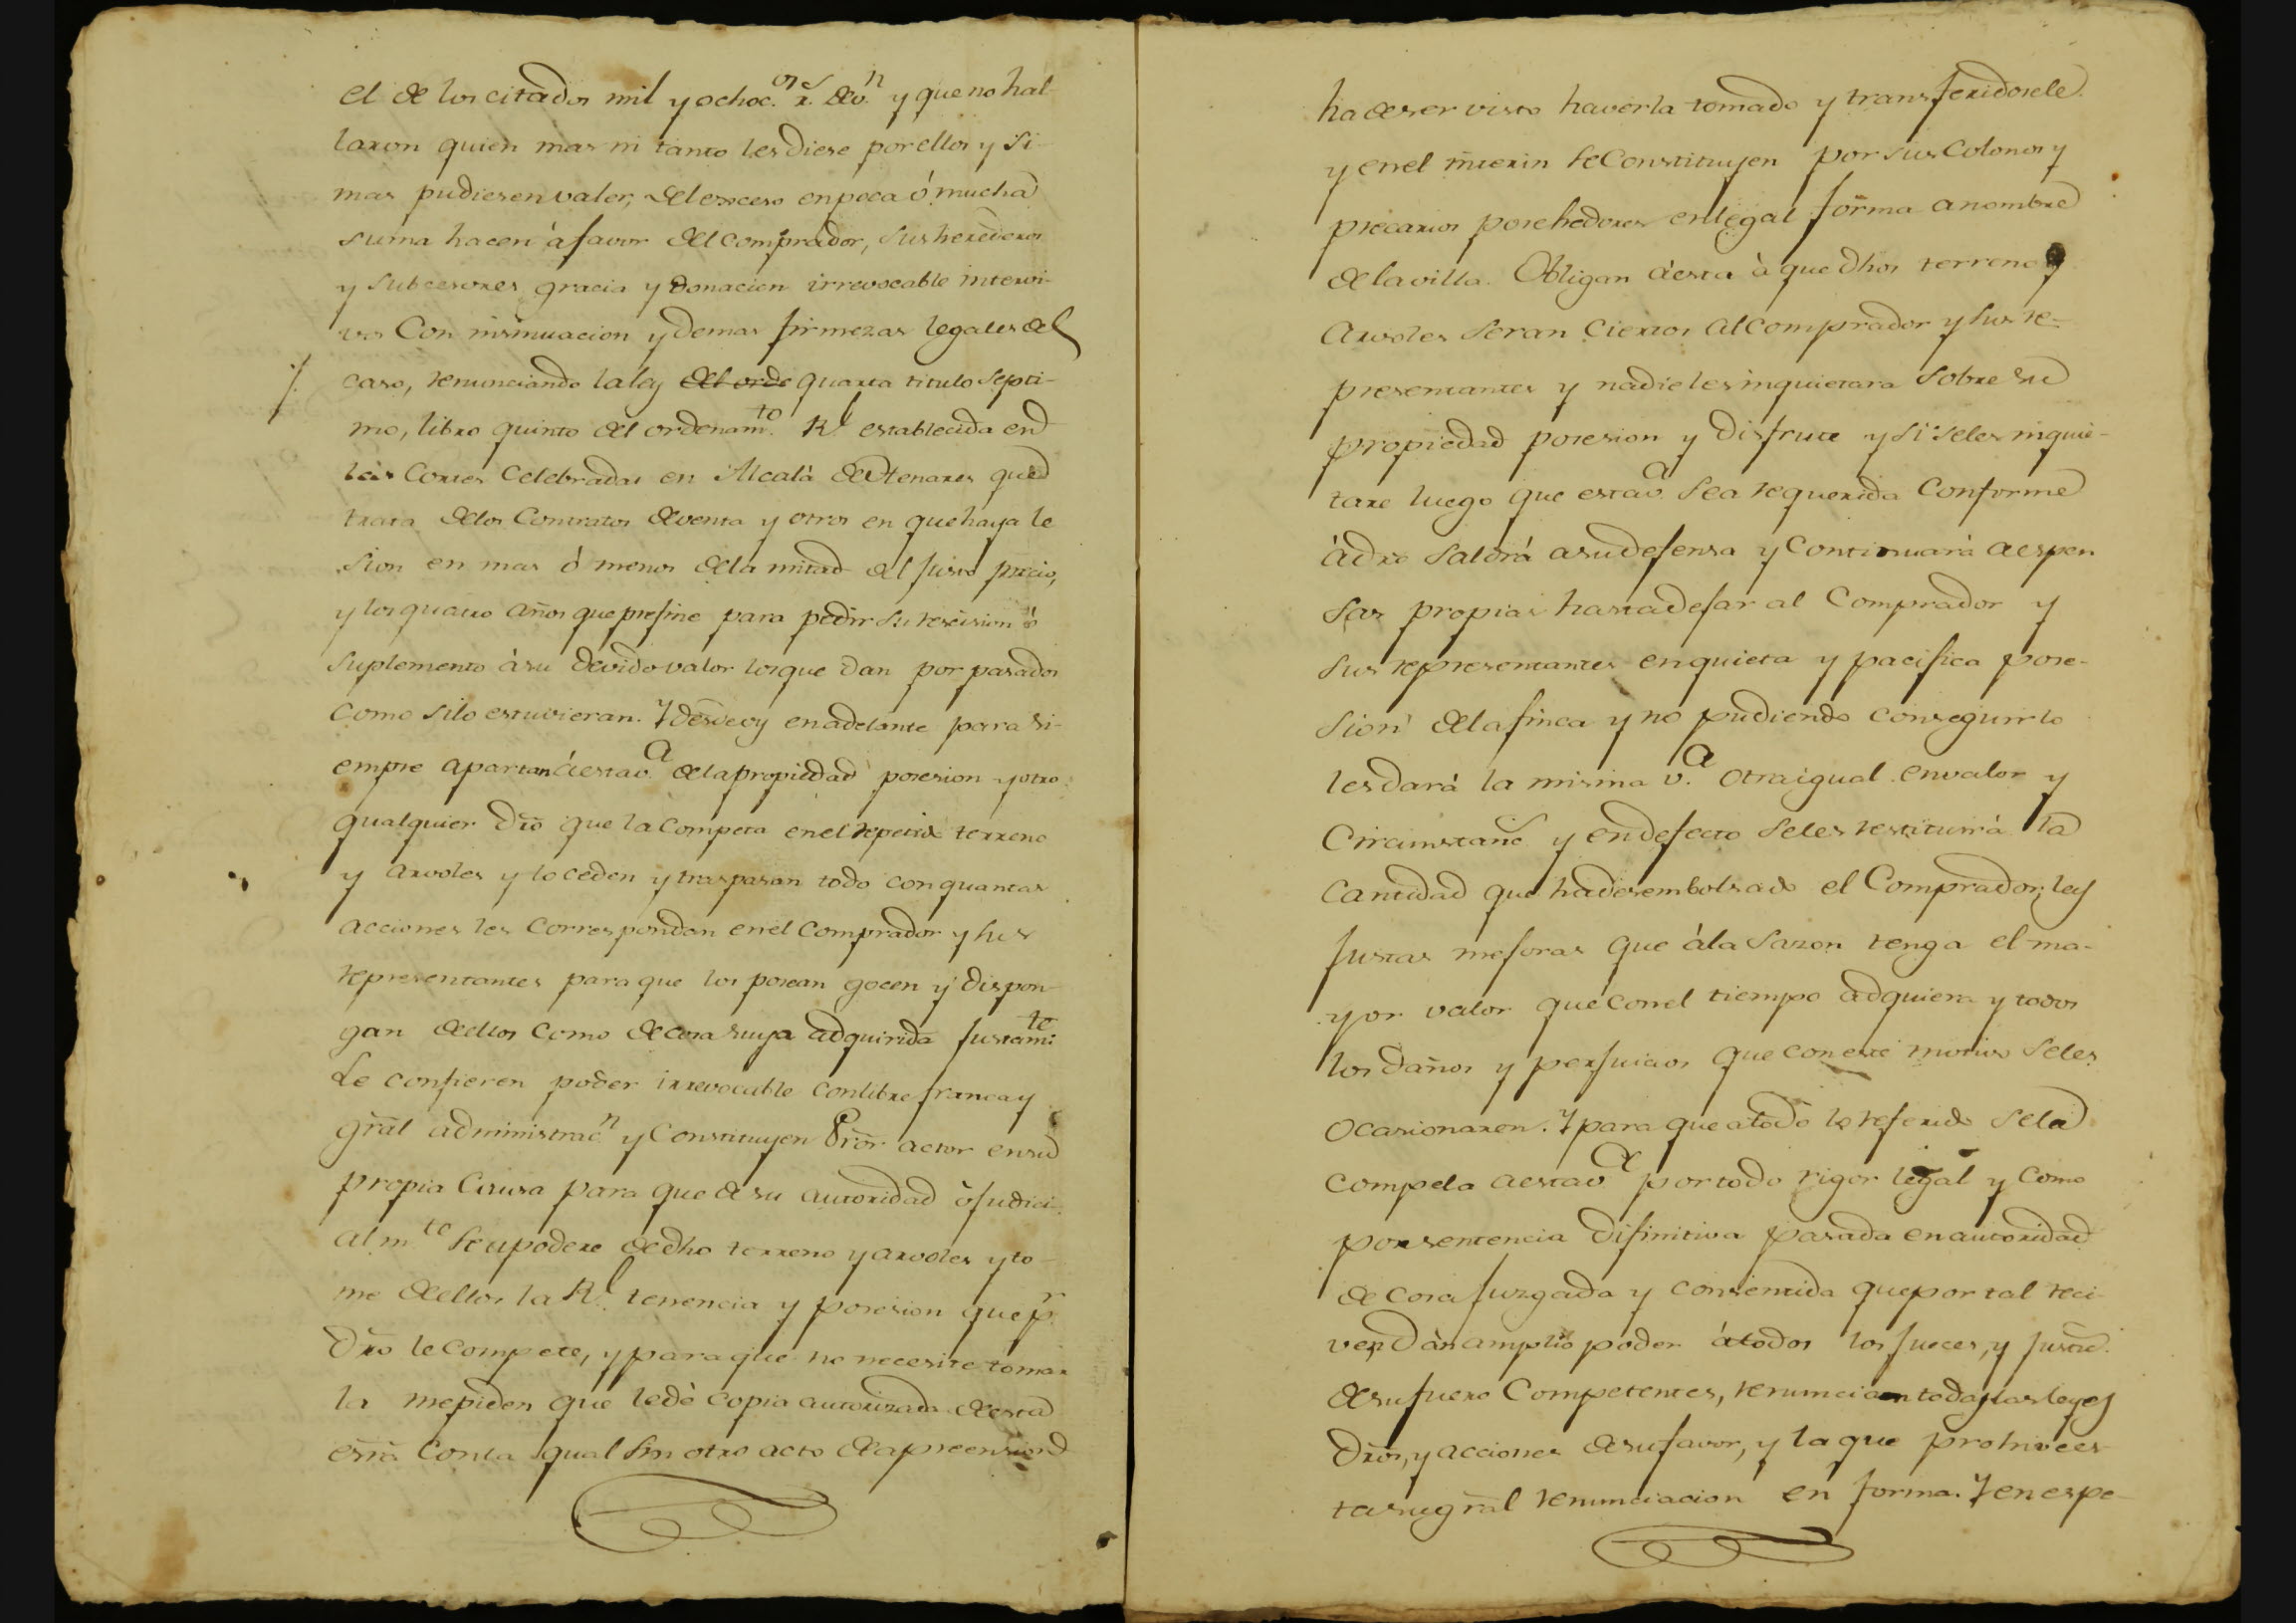 el de los citados mil y ochoc.os r.s de v.n y que no hal-
laron quien mas ni tanto les diese por ellos y si
mas pudiesen valer, del exceso en poca ó mucha
suma hacen á favor del comprador, sus herederos
y subcesores gracia y donacion irrevocable intervi-
vos Con insinuacion y demas firmezas legales del
caso, renunciando la ley del orde quarta titulo septi-
mo, libro quinto del ordenam.to R.l establecida en
las Cortes Celebradas en Alcalá de Henares que
trata de los Contratos de venta y otros en que haya le
sion en mas ó menos de la mitad del justo precio,
y los quatro años que prefine para pedir su rescision ó
suplemento á su devido valor los que dan por pasados
como si lo estuvieran. Y desde oy en adelante para si-
empre apartan á esta v.a de la propiedad posesion y otro
qualquier dro que la competa en el repetido terreno
y arvoles y lo ceden y traspasan todo con quantas
acciones les correspondan en el comprador y sus
representantes para que los posean gocen y dispon-
gan de ellos como de cosa suya adquirida justam.te
Le confieren poder irrevocable con libre franca y
gral administrac.n y Constituyen Pror actor en su
propia Causa para que de su autoridad ó judici-
alm.te se apodere de dho terreno y arvoles y to-
me de ellos la R.l tenencia y posesion que p.r
dro le compete, y para que no necesite tomar
la me piden que le dé copia autorizada de esta
esra con la qual sin otro acto de apreension
ha de ser visto haverla tomado y transferidosele
y en el interin se Constituyen por sus Colonos y
precarios posehedores en legal forma a nombre
de la villa. Obligan á esta á que dhos terreno y
Arvoles seran Ciertos al comprador y sus re-
presentantes y nadie les inquietara sobre su
propiedad posesion y disfrute y si se les inquie-
tare luego que esta v.a sea requerida Conforme
á dro saldrá a su defensa y Continuará a espen
sas propias hasta dejar al Comprador y
sus representantes en quieta y pacifica pose-
sion de la finca y no pudiendo conseguirlo
les dará la misma v.a otra igual en valor y
Circunstanc.s y en defecto se les restituirá la
cantidad que ha desembolsado el Comprador, las
justas mejoras que á la sazon tenga el ma-
yor valor que con el tiempo adquiera y todos
los daños y perjuicios que con este motivo se les
ocasionaren. Y para que a todo lo referido se la
compela a esta v.a por todo rigor legal y como
por sentencia difinitiva pasada en autoridad
de cosa juzgada y consentida que por tal reci-
ven dan amplio poder á todos los jueces, y justic.s
de su fuero Competentes, renuncian todas las leyes
dros, y acciones de su favor, y la que prohive es-
ta su gral renunciacion en forma. Y en espe-